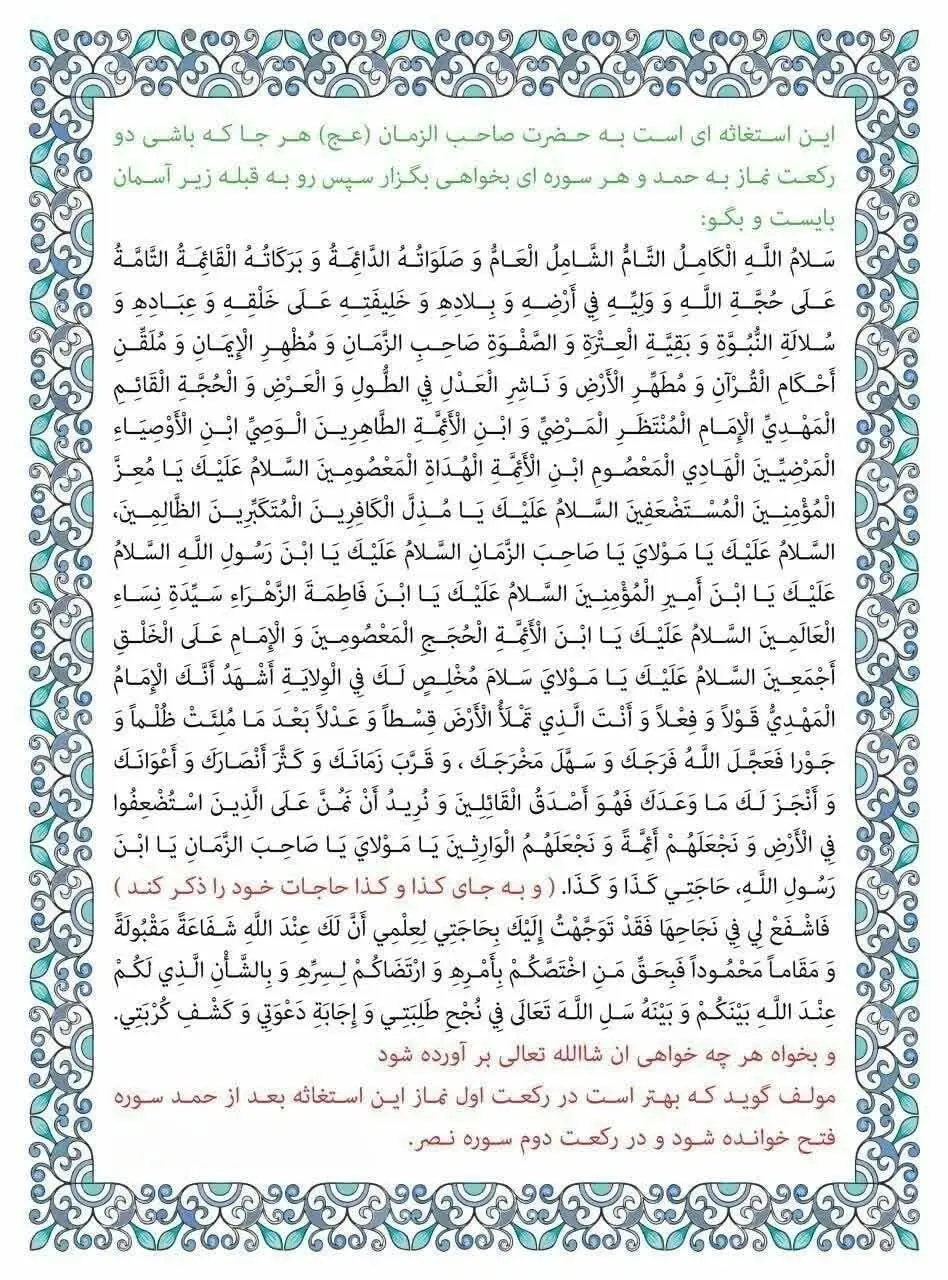 این استغاثه ای است به حضرت صاحب الزمان (عج) هر جا که باشی دو
رکعت نماز به حمد و هر سوره ای بخواهی بگزار سپس رو به قبله زیر آسمان
بایست و بگو:
سَلامُ اللَّهِ الْكَامِلُ التَّامُّ الشَّامِلُ الْعَامُّ وَ صَلَوَاتُهُ الدَّائِمَةُ وَ بَرَكَاتُهُ الْقَائِمَةُ التَّامَّةُ
عَلَى حُجَّةِ اللَّهِ وَ وَلِيِّهِ فِي أَرْضِهِ وَ بِلادِهِ وَ خَلِيفَتِهِ عَلَى خَلْقِهِ وَ عِبَادِهِ وَ
سُلالَةِ النُّبُوَّةِ وَ بَقِيَّةِ الْعِتْرَةِ وَ الصَّفْوَةِ صَاحِبِ الزَّمَانِ وَ مُظْهِرِ الْإِيمَانِ وَ مُلَقِّنِ
أَحْكَامِ الْقُرْآنِ وَ مُطَهِّرِ الْأَرْضِ وَ نَاشِرِ الْعَدْلِ فِي الطُّولِ وَ الْعَرْضِ وَ الْحُجَّةِ الْقَائِمِ
الْمَهْدِيِّ الْإِمَامِ الْمُنْتَظَرِ الْمَرْضِيِّ وَ ابْنِ الْأَئِمَّةِ الطَّاهِرِينَ الْوَصِيِّ ابْنِ الْأَوْصِيَاءِ
الْمَرْضِيِّينَ الْهَادِي الْمَعْصُومِ ابْنِ الْأَئِمَّةِ الْهُدَاةِ الْمَعْصُومِينَ السَّلامُ عَلَيْكَ يَا مُعِزَّ
الْمُؤْمِنِينَ الْمُسْتَضْعَفِينَ السَّلامُ عَلَيْكَ يَا مُذِلَّ الْكَافِرِينَ الْمُتَكَبِّرِينَ الظَّالِمِينَ،
السَّلامُ عَلَيْكَ يَا مَوْلايَ يَا صَاحِبَ الزَّمَانِ السَّلامُ عَلَيْكَ يَا ابْنَ رَسُولِ اللَّهِ السَّلامُ
عَلَيْكَ يَا ابْنَ أَمِيرِ الْمُؤْمِنِينَ السَّلامُ عَلَيْكَ يَا ابْنَ فَاطِمَةَ الزَّهْرَاءِ سَيِّدَةِ نِسَاءِ
الْعَالَمِينَ السَّلامُ عَلَيْكَ يَا ابْنَ الْأَئِمَّةِ الْحُجَجِ الْمَعْصُومِينَ وَ الْإِمَامِ عَلَى الْخَلْقِ
أَجْمَعِينَ السَّلامُ عَلَيْكَ يَا مَوْلايَ سَلامَ مُخْلِصٍ لَكَ فِي الْوِلايَةِ أَشْهَدُ أَنَّكَ الْإِمَامُ
الْمَهْدِيُّ قَوْلاً وَ فِعْلاً وَ أَنْتَ الَّذِي تَمْلَأُ الْأَرْضَ قِسْطاً وَ عَدْلاً بَعْدَ مَا مُلِئَتْ ظُلْماً وَ
جَوْرا فَعَجَّلَ اللَّهُ فَرَجَكَ وَ سَهَّلَ مَخْرَجَكَ ، وَ قَرَّبَ زَمَانَكَ وَ كَثَّرَ أَنْصَارَكَ وَ أَعْوَانَكَ
وَ أَنْجَزَ لَكَ مَا وَعَدَكَ فَهُوَ أَصْدَقُ الْقَائِلِينَ وَ نُرِيدُ أَنْ نَمُنَّ عَلَى الَّذِينَ اسْتُضْعِفُوا
فِي الْأَرْضِ وَ نَجْعَلَهُمْ أَئِمَّةً وَ نَجْعَلَهُمُ الْوَارِثِينَ يَا مَوْلايَ يَا صَاحِبَ الزَّمَانِ يَا ابْنَ
رَسُولِ اللَّهِ، حَاجَتِي كَذَا وَ كَذَا. ( و به جای کذا و کذا حاجات خود را ذکر کند )
فَاشْفَعْ لِي فِي نَجَاحِهَا فَقَدْ تَوَجَّهْتُ إِلَيْكَ بِحَاجَتِي لِعِلْمِي أَنَّ لَكَ عِنْدَ اللَّهِ شَفَاعَةً مَقْبُولَةً
وَ مَقَاماً مَحْمُوداً فَبِحَقِّ مَنِ اخْتَصَّكُمْ بِأَمْرِهِ وَ ارْتَضَاكُمْ لِسِرِّهِ وَ بِالشَّأْنِ الَّذِي لَكُمْ
عِنْدَ اللَّهِ بَيْنَكُمْ وَ بَيْنَهُ سَلِ اللَّهَ تَعَالَى فِي نُجْحِ طَلِبَتِي وَ إِجَابَةِ دَعْوَتِي وَ كَشْفِ كُرْبَتِي.
و بخواه هر چه خواهی ان شاالله تعالی بر آورده شود
مولف گوید که بهتر است در رکعت اول نماز این استغاثه بعد از حمد سوره
فتح خوانده شود و در رکعت دوم سوره نصر.